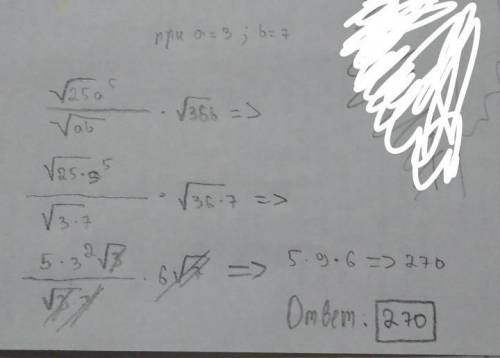 при a=3 ; b=7
√25a⁵ / √ab · √36b =>
√25·3⁵ / √3·7 · √36·7 =>
5·3²√3 / √3·7 · 6√7 => 5·9·6 => 270
Ответ. 270